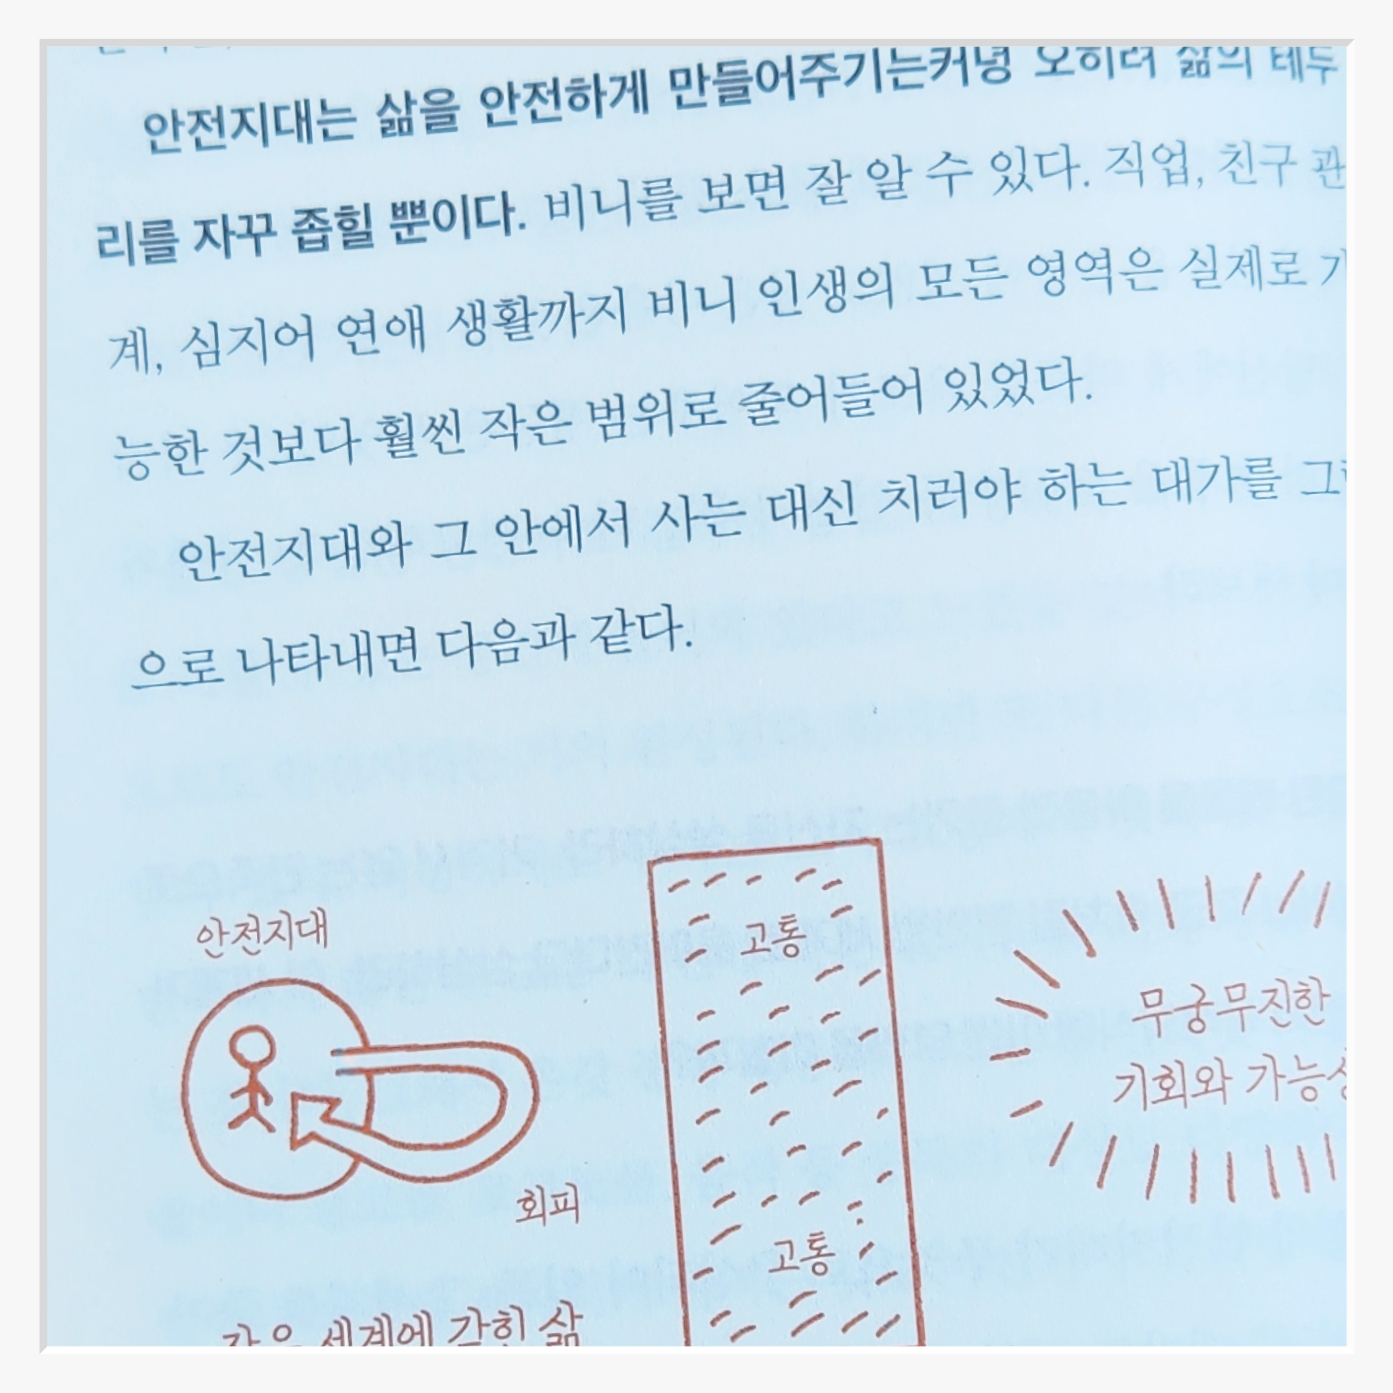 안전지대는 삶을 안전하게 만들어주기는커녕 오히려 삶의 테두
리를 자꾸 좁힐 뿐이다. 비니를 보면 잘 알 수 있다. 직업, 친구 관
계, 심지어 연애 생활까지 비니 인생의 모든 영역은 실제로 가
능한 것보다 훨씬 작은 범위로 줄어들어 있었다.
안전지대와 그 안에서 사는 대신 치러야 하는 대가를
으로 나타내면 다음과 같다.
안전지대
고통
무궁무진한
기회와
회피
고통
작은 세계에 갇힌 삶